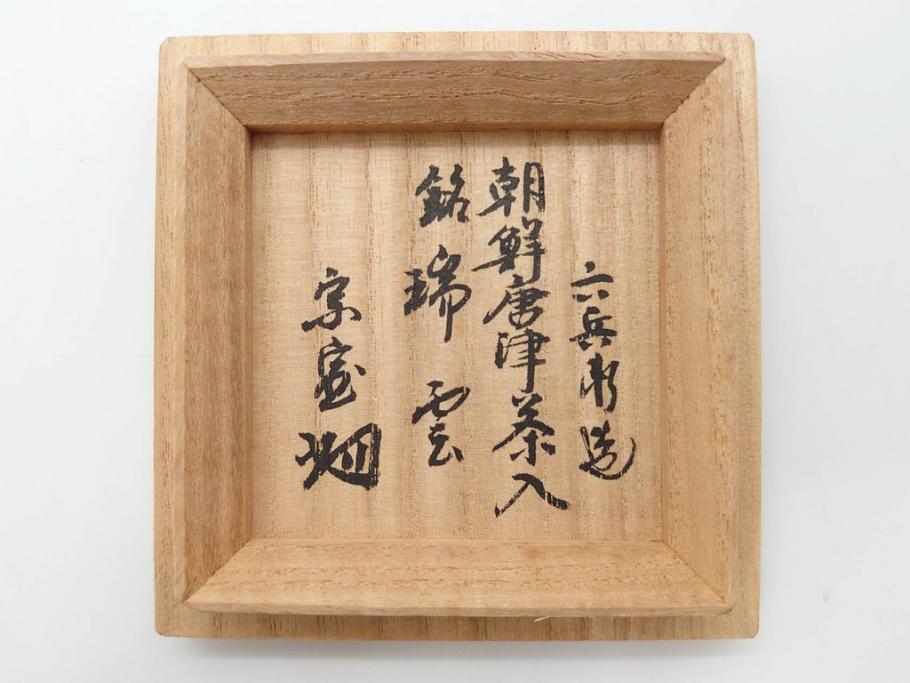 六兵衛造
朝鮮唐津茶入
銘瑞雲
宗室